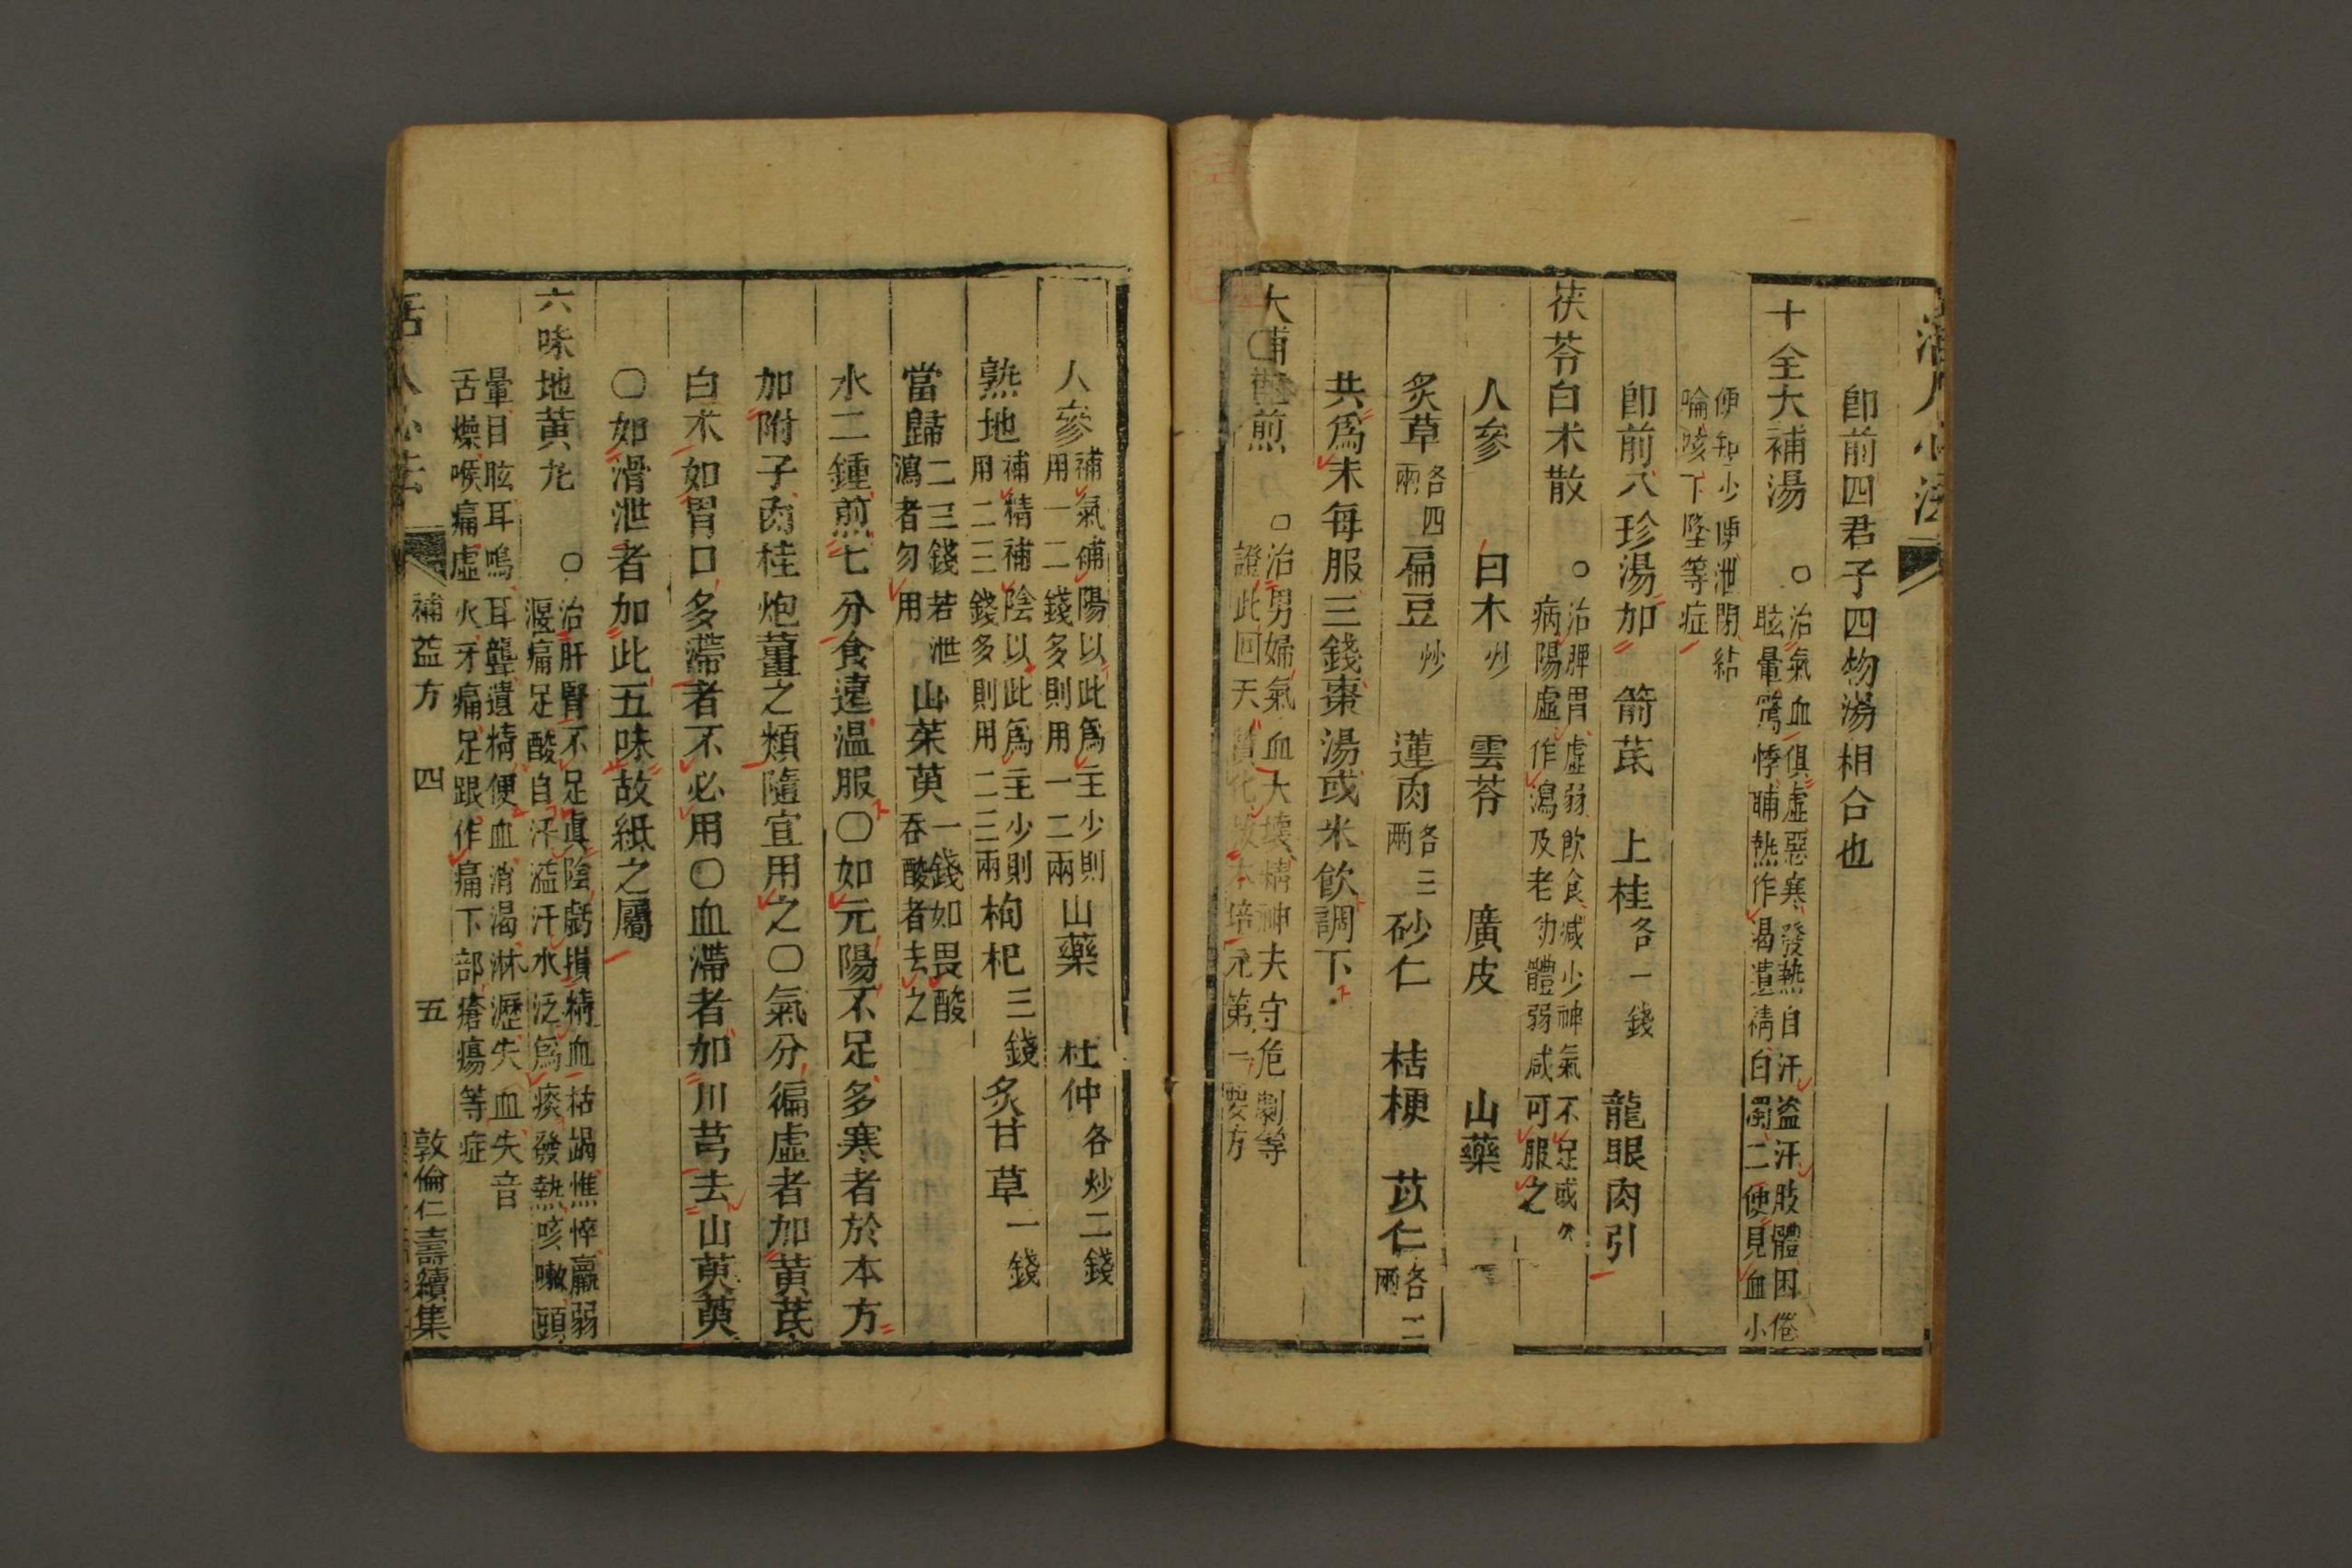 活人心法
卽前四君子四物湯相合也
十全大補湯
○治氣血俱虛惡寒發熱自汗盗汗肢體困倦
眩暈驚悸晡熱作渴遺精白濁二便見血小
便短少便泄閉結
喻咳下墜等症
卽前八珍湯加 箭茋 上桂各一錢 龍眼肉引
茯苓白术散
○治脾胃虛弱飲食减少神氣不足或久
病陽虛作瀉及老幼體弱咸可服之
人參 白术炒 雲苓 廣皮 山藥
炙草各四兩 扁豆炒 蓮肉各三兩 砂仁 桔梗 苡仁各二兩
共爲末每服三錢棗湯或米飲調下
大補元煎
○治男婦氣血大壞精神失守危劇等
證此回天贊化救本培元第一要方
人參補氣補陽以此爲主少則用一二錢多則用一二兩 山藥 杜仲各炒二錢
熟地補精補陰以此爲主少則用二三錢多則用二三兩 枸杞三錢 炙甘草一錢
當歸二三錢若泄瀉者勿用 山茱萸一錢如畏酸吞酸者去之
水二鍾煎七分食遠温服○如元陽不足多寒者於本方
加附子肉桂炮薑之類隨宜用之○氣分徧虛者加黄芪
白术如胃口多滯者不必用○血滯者加川芎去山萸萸
○如滑泄者加此五味故紙之屬
六味地黄丸
○治肝腎不足眞陰虧損精血枯竭憔悴羸弱
腰痛足酸自汗盗汗水泛爲痰發熱咳嗽頭
暈目眩耳鳴耳聾遺精便血消渴淋瀝失血失音
舌燥喉痛虛火牙痛足跟作痛下部瘡瘍等症
活人心法 補益方 四 五 敦倫仁壽續集